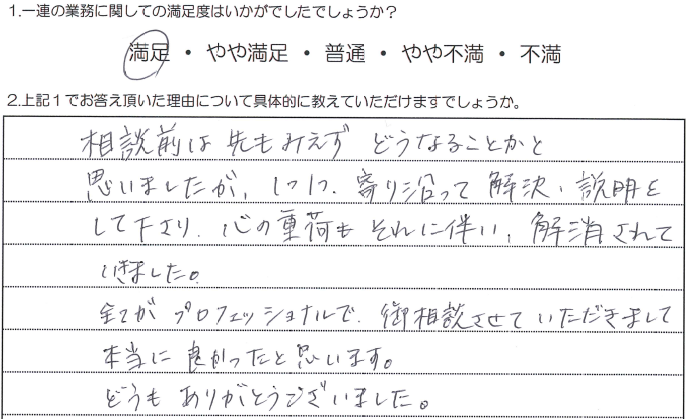 1.一連の業務に関しての満足度はいかがでしたでしょうか？
満足 ・ やや満足 ・ 普通 ・ やや不満 ・ 不満
2.上記1でお答え頂いた理由について具体的に教えていただけますでしょうか。
相談前は 先もみえず どうなることかと
思いましたが、1つ1つ、寄り沿って 解決、説明を
して下さり、心の重荷も それに伴い、解消されて
いきました。
全てが プロフェッショナルで、御相談させていただきまして
本当に 良かったと思います。
どうも ありがとうございました。